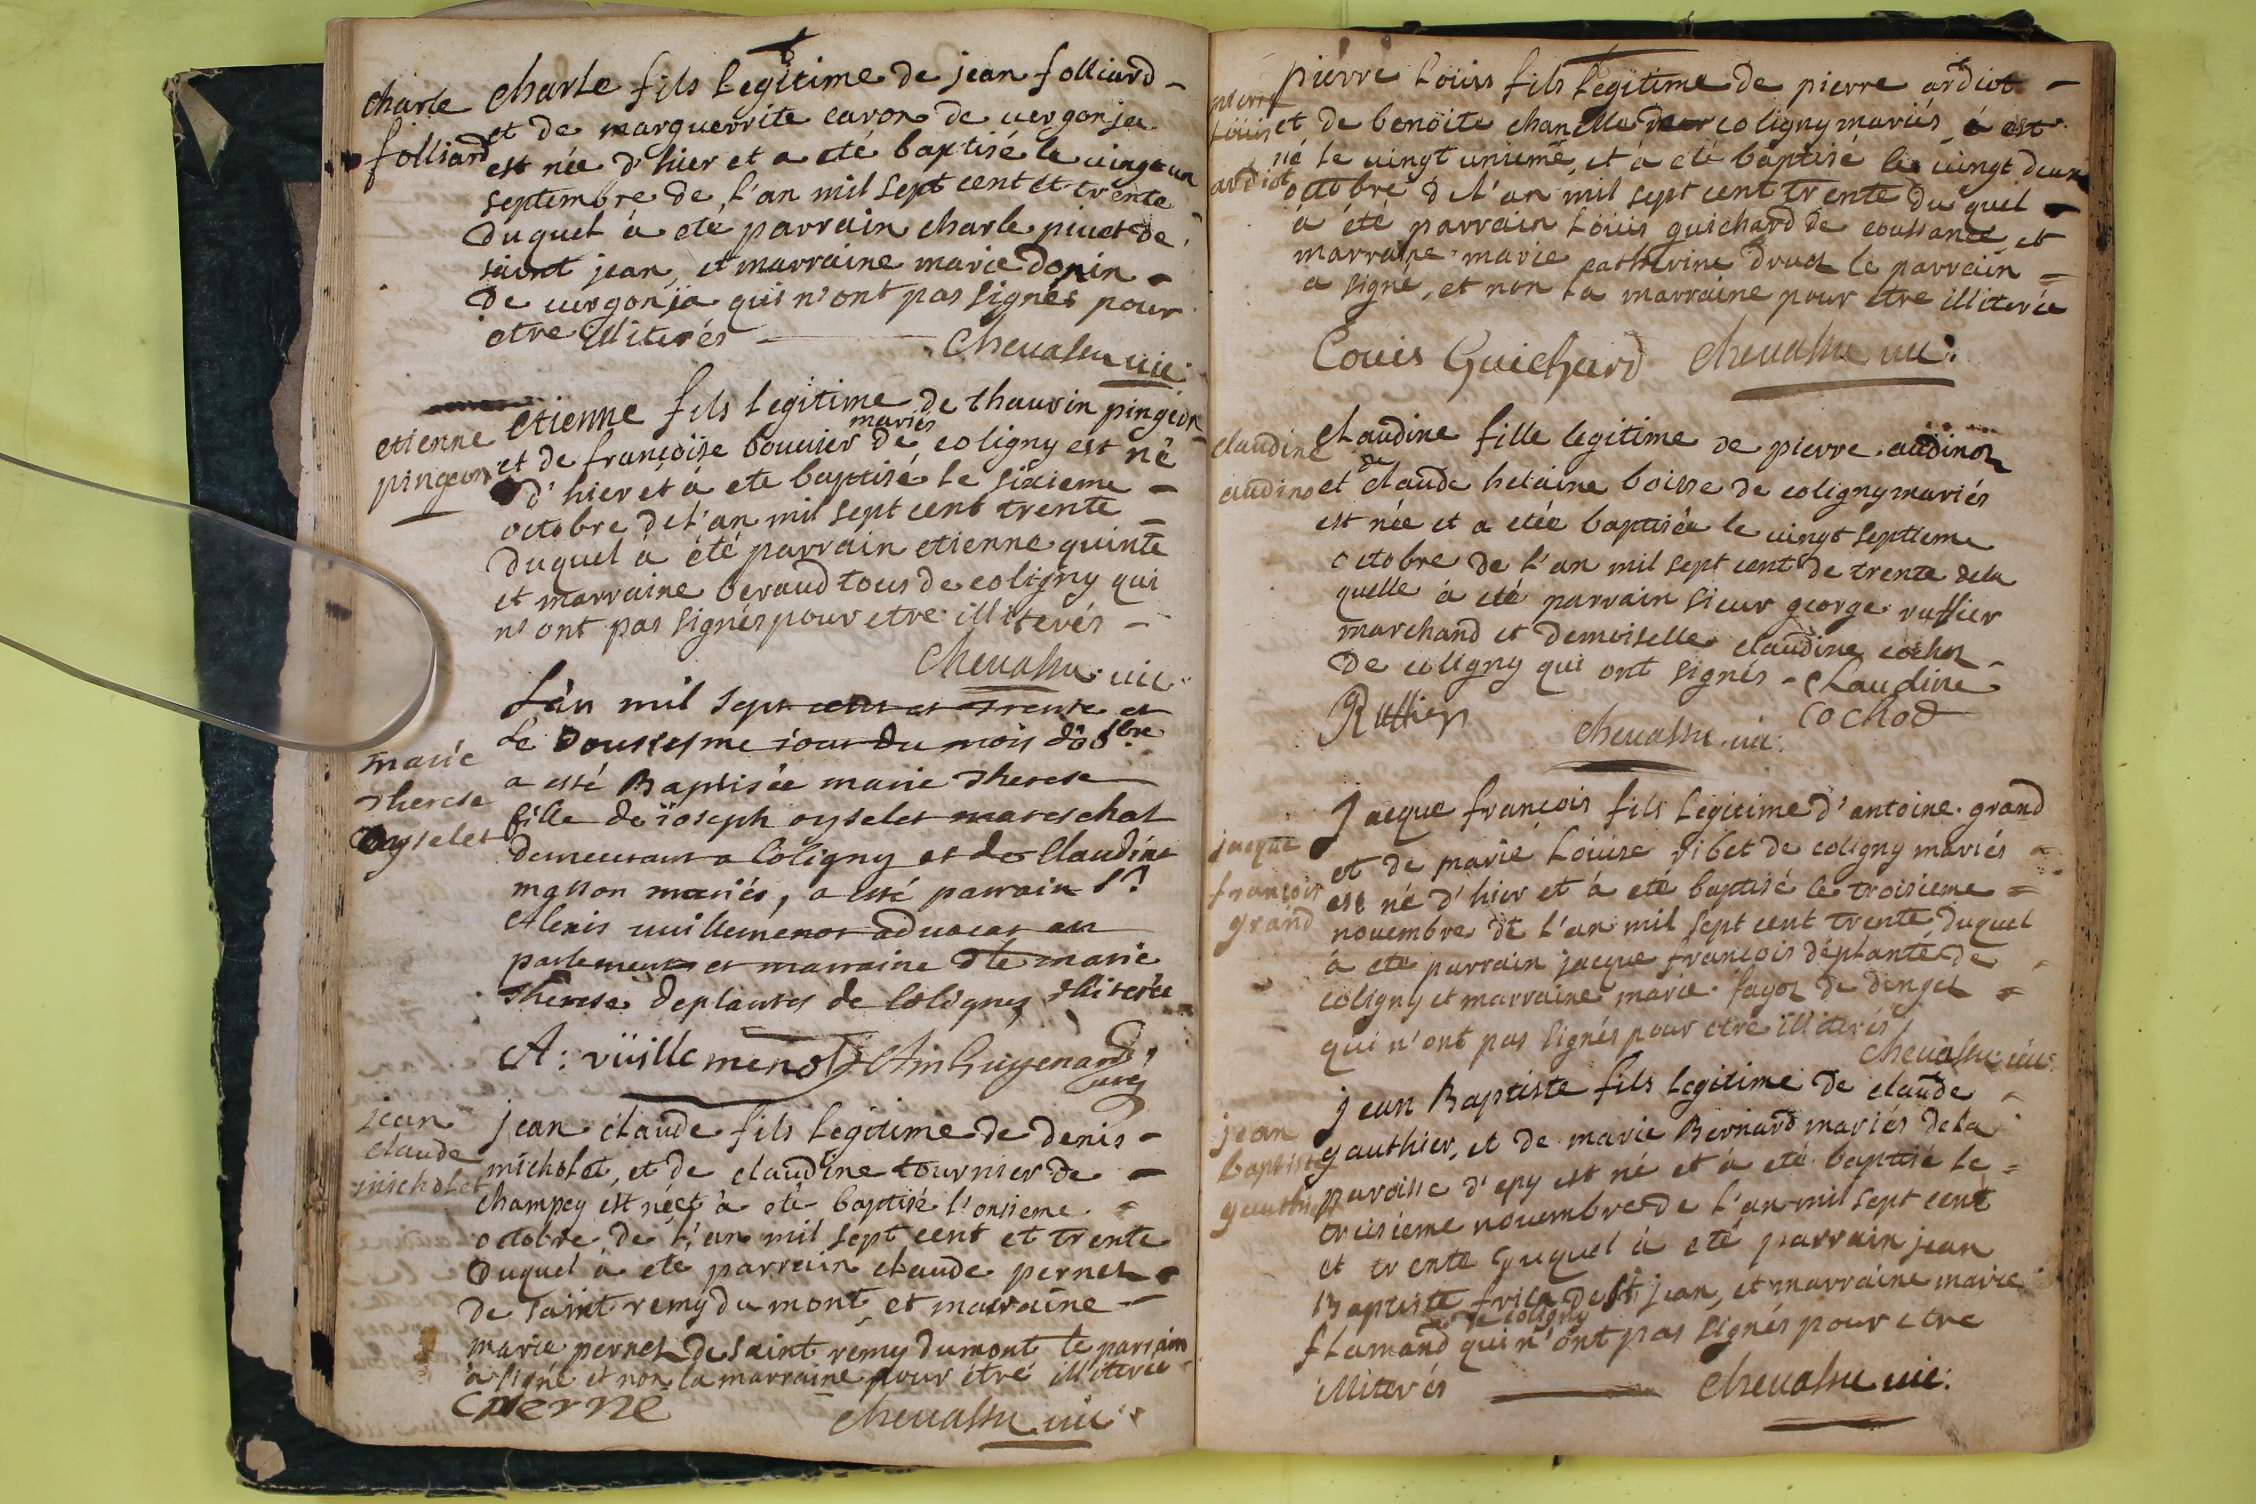 charle
folliard
charle fils legitime de jean folliard
et de marguerrite caron de vergonja
est née d'hier et a eté baptisé le vingt un
septembre de l'an mil sept cent et trente
duquel à eté parrain charle pivet de
saint jean, et marraine marie donin
de vergonja qui n'ont pas signés pour
etre illiterés
Chevassu vic:
etienne
pingeon
etienne fils legitime de thaurin pingeon
et de françoise bouvier mariés de coligny est né
d'hier et à eté baptisé le sixieme
octobre de l'an mil sept cent trente
duquel à été parrain etienne quinte
et marraine beraud tous de coligny qui
n'ont pas signés pour etre illiterés
Chevassu vic:
marie
therese
oyselet
L'an mil sept cent et trente et
le douziesme jour du mois d'8bre
a esté Baptisée marie therese
fille de ioseph oyselet mareschal
demeurant a Coligny et de Claudine
masson mariés, a esté parrain Sr
Alexis vuillemenot advocat au
parlement et marraine dlle marie
therese deplantes de Coligny illiterée
A: vüillemenot
jean
claude
micholet
jean claude fils legitime de denis
micholet, et de claudine tournier de
champey est né et à eté baptisé l'onsieme
octobre de l'an mil sept cent et trente
duquel à eté parrain claude pernet
de saint remy du mont et marraine
marie pernet de saint remy dumont le parrain
à signé et non la marraine pour étre illiterée
C perne
chevassu vic:
pierre
Loüis
ardiot
pierre Loüis fils legitime de pierre ardiot
et de benoite chanelle de coligny mariés, est
né le vingt unieme, et à eté baptisé le vingt deux
octobre de l'an mil sept cent trente duquel
à été parrain Loüis guichard de coussance, et
marraine marie catherine druet le parrain
a signé, et non la marraine pour etre illiterée
Louis Guichard chevassu vic:
claudine
audino
claudine fille legitime de pierre audinot
et de claude helaine boisse de coligny mariés
est née et a etée baptisée le vingt septieme
octobre de l'an mil sept cent de trente dela
quelle à eté parrain sieur george ruffier
marchand et demoiselle claudine cochot
de coligny qui ont signés - claudine
Ruffier cochod
chevassu vic:
jacque
françois
grand
jacque françois fils legitime d'antoine grand
et de marie Loüise ribet de coligny mariés
est né d'hier et à eté baptisé le troisieme
novembre de l'an mil sept cent trente, duquel
à eté parrain jacque françois déplante de
coligny et marraine marie fayot de dingiet
qui n'ont pas signés pour etre illiterés
chevassu vic:
jean
baptiste
gauthier
jean Baptiste fils legitime de claude
gauthier, et de marie Bernard mariés dela
paroisse d'epy est né et à eté baptisé le
troisieme novembre de l'an mil sept cent
et trente duquel à eté parrain jean
Baptiste de st jean, et marraine marie
flamand de coligny qui n'ont pas signés pour etre
illiterés chevassu vic: